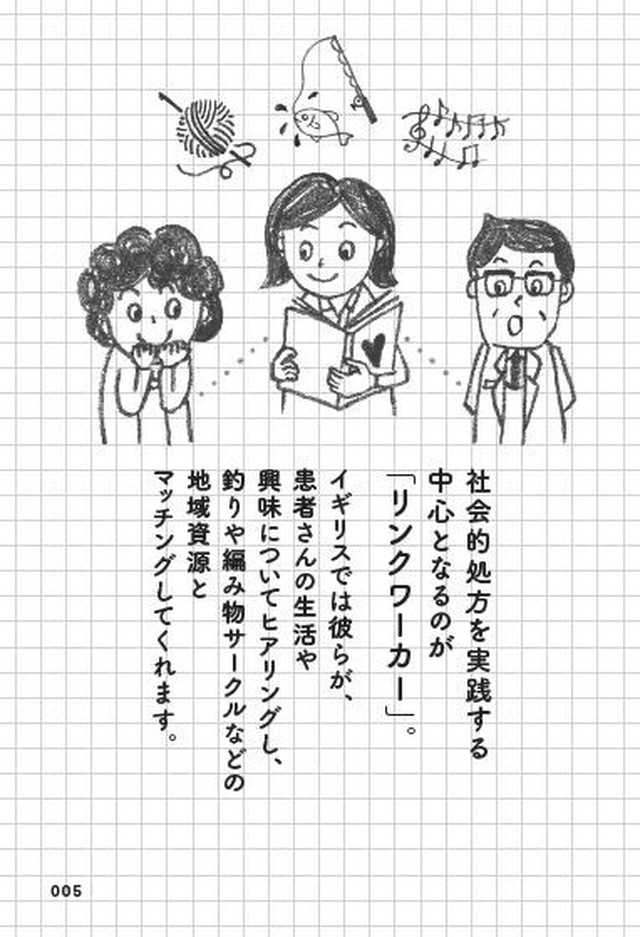 社会的処方を実践する
中心となるのが
「リンクワーカー」。
イギリスでは彼らが、
患者さんの生活や
興味についてヒアリングし、
釣りや編み物サークルなどの
地域資源と
マッチングしてくれます。
005